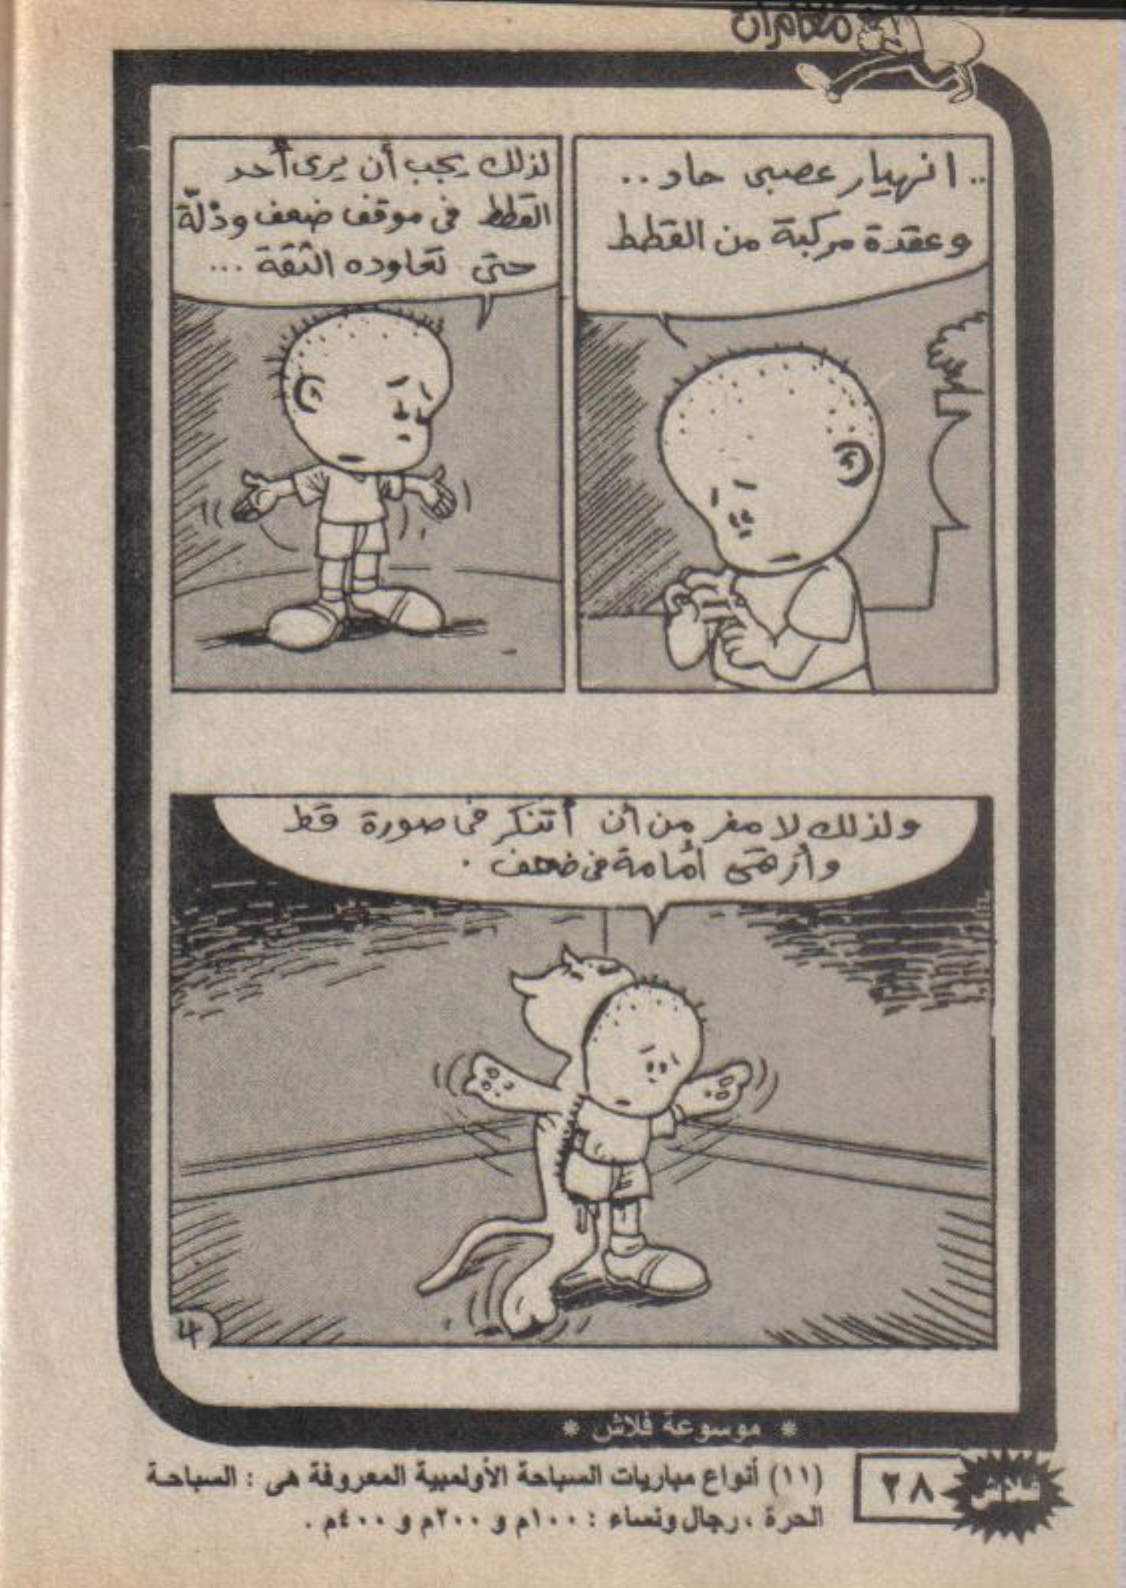 مغامرات
.. انهيار عصبى حاد ..
وعقدة مركبة من القطط
لذلك يجب أن يرى أحد
القطط فى موقف ضعف وذلّة
حتى تعاوده الثقة ...
ولذلك لا مفر من أن أتنكر فى صورة قط
وأرتمى أمامه فى ضعف .
٤
* موسوعة فلاش *
(١١) أنواع مباريات السباحة الأولمبية المعروفة هى : السباحة
الحرة ، رجال ونساء : ١٠٠م و ٢٠٠م و ٤٠٠م .
٢٨
فلاش